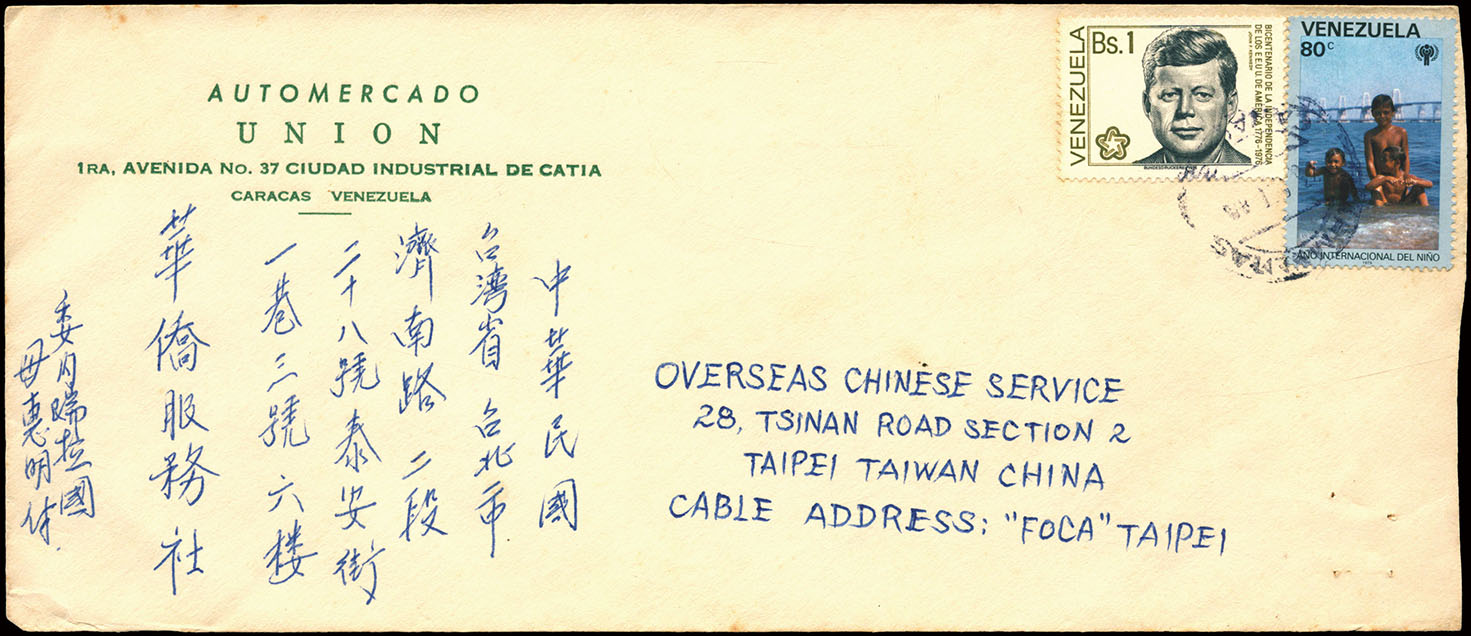 AUTOMERCADO
UNION
1RA, AVENIDA No. 37 CIUDAD INDUSTRIAL DE CATIA
CARACAS VENEZUELA
VENEZUELA
Bs.1
BICENTENARIO DE LA INDEPENDENCIA
DE LOS EE.UU. DE AMERICA 1776-1976
JOHN F. KENNEDY
VENEZUELA
80c
AÑO INTERNACIONAL DEL NIÑO
1979
中華民國
台湾省 台北市
濟南路 二段
二十八號泰安街
一巷三號六楼
華僑服務社
委内瑞拉國
惠明
OVERSEAS CHINESE SERVICE
28, TSINAN ROAD SECTION 2
TAIPEI TAIWAN CHINA
CABLE ADDRESS: "FOCA" TAIPEI